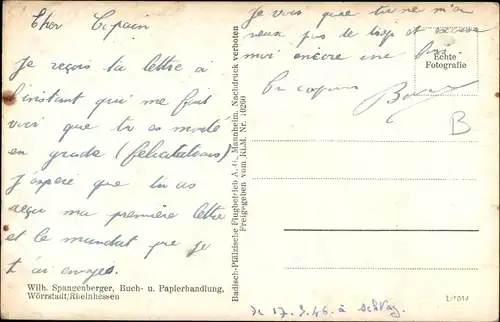 Cher Copain
Je reçois ta lettre à
l'instant qui me fait
voir que tu as monté
en grade (félicitations)
j'espère que tu as
reçu ma première lettre
et le mandat que je
t'ai envoyé.
Je vois que tu ne m'en
veux pas de trop et
moi encore une fois
Un copain
B
Echte
Fotografie
Badisch-Pfälzische Flugbetrieb A.G. Mannheim, Nachdruck verboten
Freigegeben vom RLM. Nr. 10260
Wilh. Spangenberger, Buch- u. Papierhandlung,
Wörrstadt/Rheinhessen
de 17.3.46 à